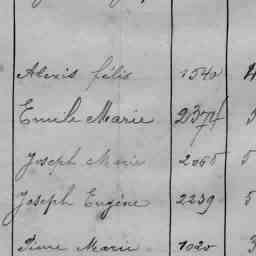 Alexis félix 1540 4
Emile Marie
Joseph Marie 2065 5
Joseph Eugène 2239 5
Pierre Marie 1020 3